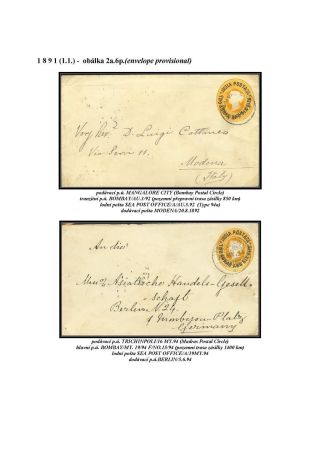 1 8 9 1 (1.1.) - obálka 2a.6p.(envelope provisional)
Very Rev. D. Luigi Cottanes
Via Servi 11.
Modena
(Italy)
podávací p.ú. MANGALORE CITY (Bombay Postal Circle)
tranzitní p.ú. BOMBAY/AU.3/92 (pozemní přepravní trasa zásilky 850 km)
lodní pošta SEA POST OFFICE/A/AU.5.92 (Type 94a)
dodávací pošta MODENA/20.8.1892
An die
Asiatische Handels-Gesell-
schaft
Berlin N 24
Platz
Germany
podávací p.ú. TRICHINPOLI/16 MY.94 (Madras Postal Circle)
hlavní p.ú. BOMBAY/MY. 19/94 F/NO.15/94 (pozemní trasa zásilky 1400 km)
lodní pošta SEA POST OFFICE/A/19MY.94
dodávací p.ú.BERLIN/5.6.94